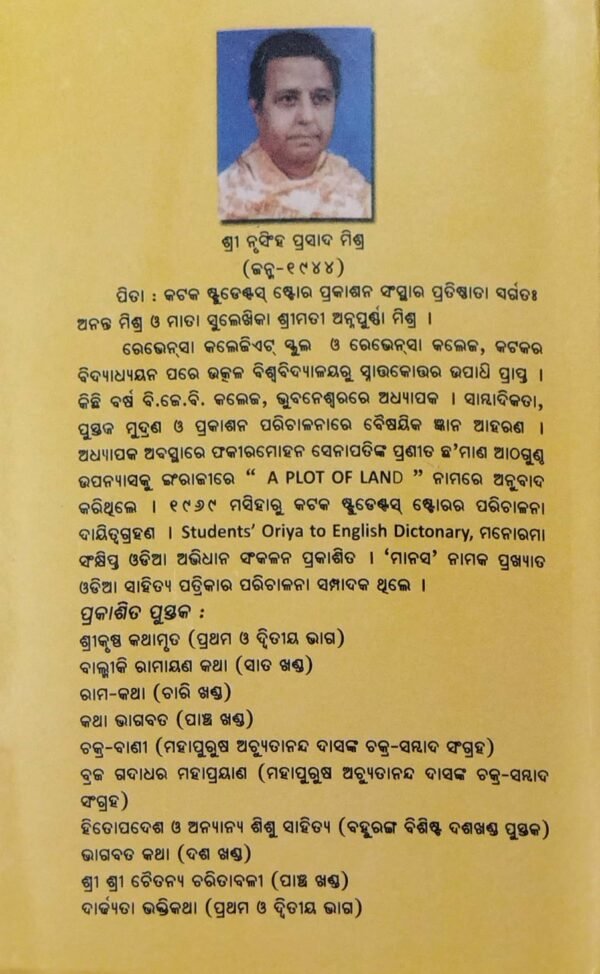 ଶ୍ରୀ ନୃସିଂହ ପ୍ରସାଦ ମିଶ୍ର
(ଜନ୍ମ-୧୯୪୪)
ପିତା : କଟକ ଷ୍ଟୁଡେଣ୍ଟସ୍ ଷ୍ଟୋର ପ୍ରକାଶନ ସଂସ୍ଥାର ପ୍ରତିଷ୍ଠାତା ସର୍ଗତଃ
ଅନନ୍ତ ମିଶ୍ର ଓ ମାତା ସୁଲେଖିକା ଶ୍ରୀମତୀ ଅନ୍ନପୂର୍ଣ୍ଣା ମିଶ୍ର ।
ରେଭେନ୍ସା କଲେଜିଏଟ୍ ସ୍କୁଲ ଓ ରେଭେନ୍ସା କଲେଜ, କଟକର
ବିଦ୍ୟାଧ୍ୟୟନ ପରେ ଉତ୍କଳ ବିଶ୍ୱବିଦ୍ୟାଳୟରୁ ସ୍ନାତକୋତ୍ତର ଉପାଧି ପ୍ରାପ୍ତ ।
କିଛି ବର୍ଷ ବି.ଜେ.ବି. କଲେଜ, ଭୁବନେଶ୍ୱରରେ ଅଧ୍ୟାପକ । ସାମ୍ବାଦିକତା,
ପୁସ୍ତକ ମୁଦ୍ରଣ ଓ ପ୍ରକାଶନ ପରିଚାଳନାରେ ବୈଷୟିକ ଜ୍ଞାନ ଆହରଣ ।
ଅଧ୍ୟାପକ ଅବସ୍ଥାରେ ଫକୀରମୋହନ ସେନାପତିଙ୍କ ପ୍ରଣୀତ ଛ'ମାଣ ଆଠଗୁଣ୍ଠ
ଉପନ୍ୟାସକୁ ଇଂରାଜୀରେ “ A PLOT OF LAND ” ନାମରେ ଅନୁବାଦ
କରିଥିଲେ । ୧୯୬୯ ମସିହାରୁ କଟକ ଷ୍ଟୁଡେଣ୍ଟସ୍ ଷ୍ଟୋରର ପରିଚାଳନା
ଦାୟିତ୍ୱଗ୍ରହଣ । Students’ Oriya to English Dictonary, ମନୋରମା
ସଂକ୍ଷିପ୍ତ ଓଡିଆ ଅଭିଧାନ ସଂକଳନ ପ୍ରକାଶିତ । ‘ମାନସ’ ନାମକ ପ୍ରଖ୍ୟାତ
ଓଡିଆ ସାହିତ୍ୟ ପତ୍ରିକାର ପରିଚାଳନା ସମ୍ପାଦକ ଥିଲେ ।
ପ୍ରକାଶିତ ପୁସ୍ତକ :
ଶ୍ରୀକୃଷ୍ଣ କଥାମୃତ (ପ୍ରଥମ ଓ ଦ୍ୱିତୀୟ ଭାଗ)
ବାଲ୍ମୀକି ରାମାୟଣ କଥା (ସାତ ଖଣ୍ଡ)
ରାମ-କଥା (ଚାରି ଖଣ୍ଡ)
କଥା ଭାଗବତ (ପାଞ୍ଚ ଖଣ୍ଡ)
ଚକ୍ର-ବାଣୀ (ମହାପୁରୁଷ ଅଚ୍ୟୁତାନନ୍ଦ ଦାସଙ୍କ ଚକ୍ର-ସମ୍ବାଦ ସଂଗ୍ରହ)
ବ୍ରଜ ଗଦାଧର ମହାପ୍ରୟାଣ (ମହାପୁରୁଷ ଅଚ୍ୟୁତାନନ୍ଦ ଦାସଙ୍କ ଚକ୍ର-ସମ୍ବାଦ
ସଂଗ୍ରହ)
ହିତୋପଦେଶ ଓ ଅନ୍ୟାନ୍ୟ ଶିଶୁ ସାହିତ୍ୟ (ବହୁରଙ୍ଗ ବିଶିଷ୍ଟ ଦଶଖଣ୍ଡ ପୁସ୍ତକ)
ଭାଗବତ କଥା (ଦଶ ଖଣ୍ଡ)
ଶ୍ରୀ ଶ୍ରୀ ଚୈତନ୍ୟ ଚରିତାବଳୀ (ପାଞ୍ଚ ଖଣ୍ଡ)
ଦାର୍ଢ୍ୟତା ଭକ୍ତିକଥା (ପ୍ରଥମ ଓ ଦ୍ୱିତୀୟ ଭାଗ)